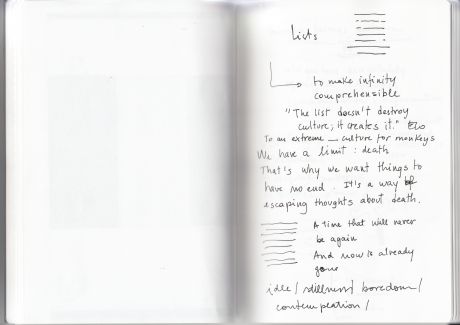 Lists
to make infinity
comprehensible
"The list doesn't destroy
culture; it creates it." Eco
To an extreme _ culture for monkeys
We have a limit : death
That's why we want things to
have no end. It's a way of
escaping thoughts about death.
A time that will never
be again
And now is already
gone
idle / stillness / boredom /
contemplation /